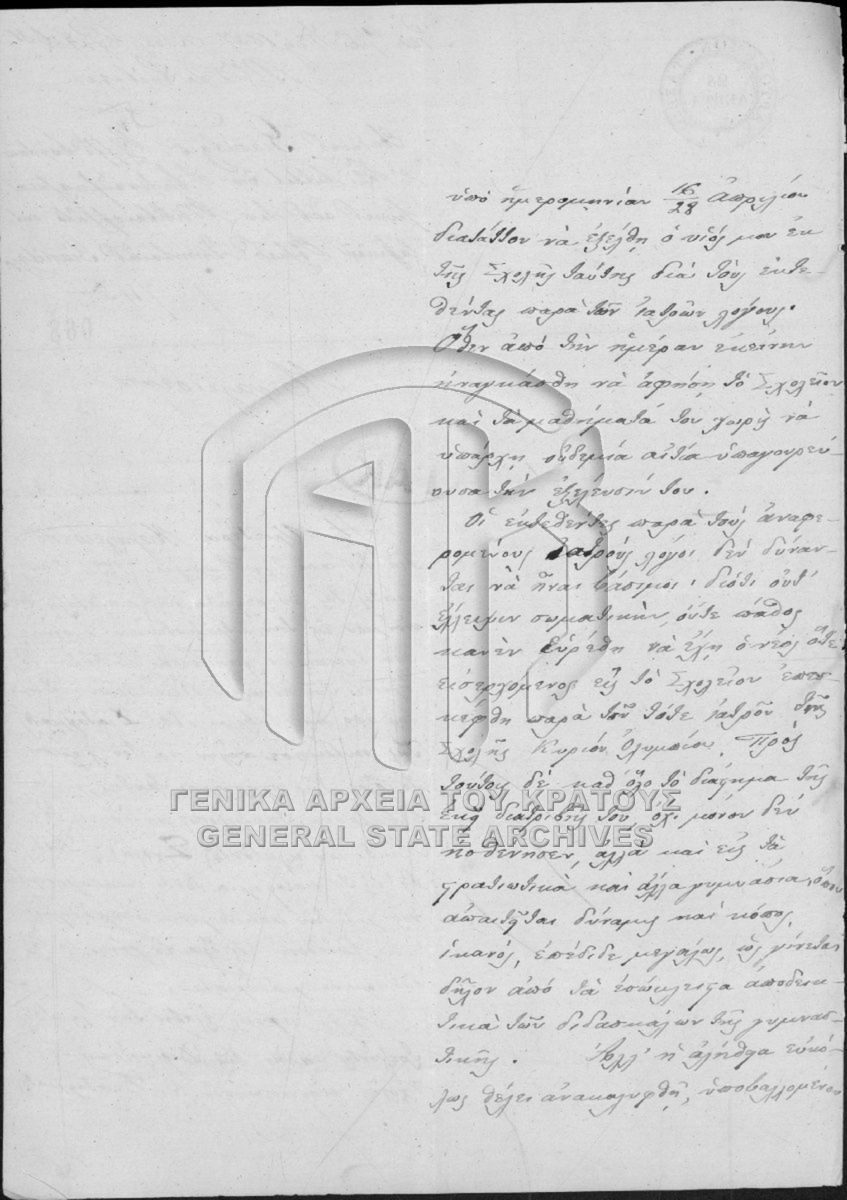 ὑπὸ ἡμερομηνίαν 16/28 Ἀπριλίου
διατάττον νὰ ἐξέλθῃ ὁ υἱός μου ἐκ
τῆς Σχολῆς ταύτης διὰ τοὺς ἐκτε-
θέντας παρὰ τῶν ἰατρῶν λόγους.
Ὅθεν ἀπὸ τὴν ἡμέραν ἐκείνην
ἠναγκάσθη νὰ ἀφήσῃ τὸ Σχολεῖον
καὶ τὰ μαθήματά του χωρὶς νὰ
ὑπάρχῃ οὐδεμία αἰτία ὑπαγορεύ-
ουσα τὴν ἐξέλευσίν του.
Οἱ ἐκτεθέντες παρὰ τοὺς ἀναφε-
ρομένους ἰατροὺς λόγοι δὲν δύναν-
ται νὰ ἦναι βάσιμοι· διότι οὔτ'
ἔλλειψιν σωματικὴν, οὔτε πάθος
κανὲν εὑρέθη νὰ ἔχῃ ὁ νέος ὅτε
εἰσερχόμενος εἰς τὸ Σχολεῖον ἐπεσ-
κέφθη παρὰ τοῦ τότε ἰατροῦ τῆς
Σχολῆς Κυρίου Ὀλυμπίου. Πρὸς
τούτοις δὲ καθ' ὅλο τὸ διάστημα τῆς
ἐκεῖ διατριβῆς του, ὄχι μόνον δὲν
ἠσθένησεν, ἀλλὰ καὶ εἰς τὰ
στρατιωτικὰ καὶ ἄλλα γυμνάσια, ὅπου
ἀπαιτεῖται δύναμις καὶ κόπος
ἱκανός, ἐπέδιδε μεγάλως, ὡς γίνεται
δῆλον ἀπὸ τὰ ἐσώκλειστα ἀποδεικ-
τικὰ τῶν διδασκάλων τῆς γυμνασ-
τικῆς. Ἀλλ' ἡ ἀλήθεια εὐκό-
λως θέλει ἀνακαλυφθῆ, ὑποβαλλομένου
ΓΕΝΙΚΑ ΑΡΧΕΙΑ ΤΟΥ ΚΡΑΤΟΥΣ
GENERAL STATE ARCHIVES